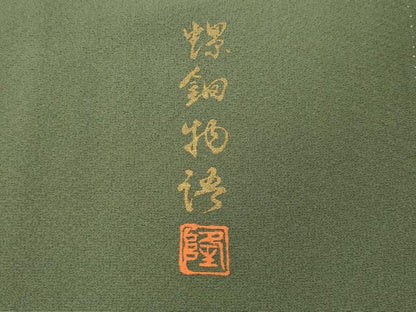 螺鈿物語
隆